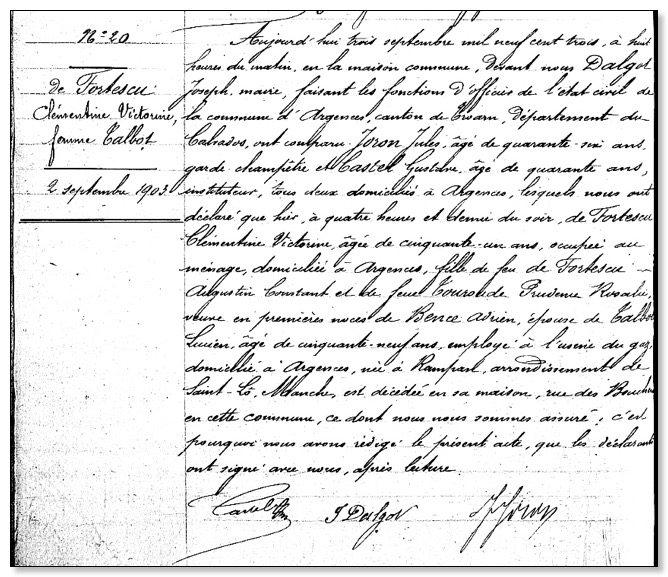 N° 20
de Fortescu
Clémentine Victorine,
femme Talbot
2 septembre 1903.
Aujourd'hui trois septembre mil neuf cent trois, à huit
heures du matin, en la maison commune, devant nous Dalgot
Joseph, maire, faisant les fonctions d'officier de l'état civil de
la commune d'Argences, canton de Troarn, Département du
Calvados, ont comparu Joron Jules, âgé de quarante-six ans,
garde champêtre et Castel Gustave, âgé de quarante ans,
instituteur, tous deux domiciliés à Argences, lesquels nous ont
déclaré que hier, à quatre heures et demie du soir, de Fortescu
Clémentine Victorine, âgée de cinquante-un ans, occupée au
ménage, domiciliée à Argences, fille de feu de Fortescu
Augustin Constant et de feue Touroude Prudence Rosalie,
veuve en premières noces de Bence Adrien, épouse de Talbot
Lucien, âgé de cinquante-neuf ans, employé à l'usine du gaz,
domicilié à Argences, née à Rampan, arrondissement de
Saint-Lô, Manche, est décédée en sa maison, rue des
en cette commune, ce dont nous nous sommes assuré, c'est
pourquoi nous avons rédigé le présent acte, que les déclarants
ont signé avec nous, après lecture.
Castel J Dalgot J Joron